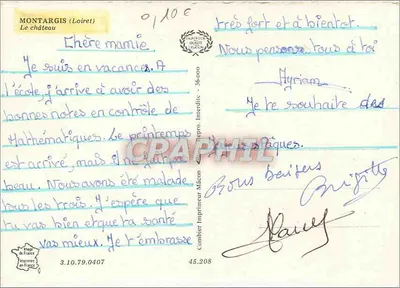 MONTARGIS (Loiret)
Le château
0,10€
Chère mamie
Je suis en vacances. A
l'école, j'arrive à avoir des
bonnes notes en contrôle de
Mathématiques. Le printemps
est arrivé, mais il ne fait pas
beau. Nous avons été malade
tous les trois. J'espère que
tu vas bien et que ta santé
vas mieux. Je t'embrasse
3.10.79.0407
45.208
Combier Imprimeur Mâcon
Repro. Interdite - 36-000
CPAPHIL
très fort et à bientôt.
Nous pensons tous à toi
Myriam
Je te souhaite des
Bons baisers
Brigitte